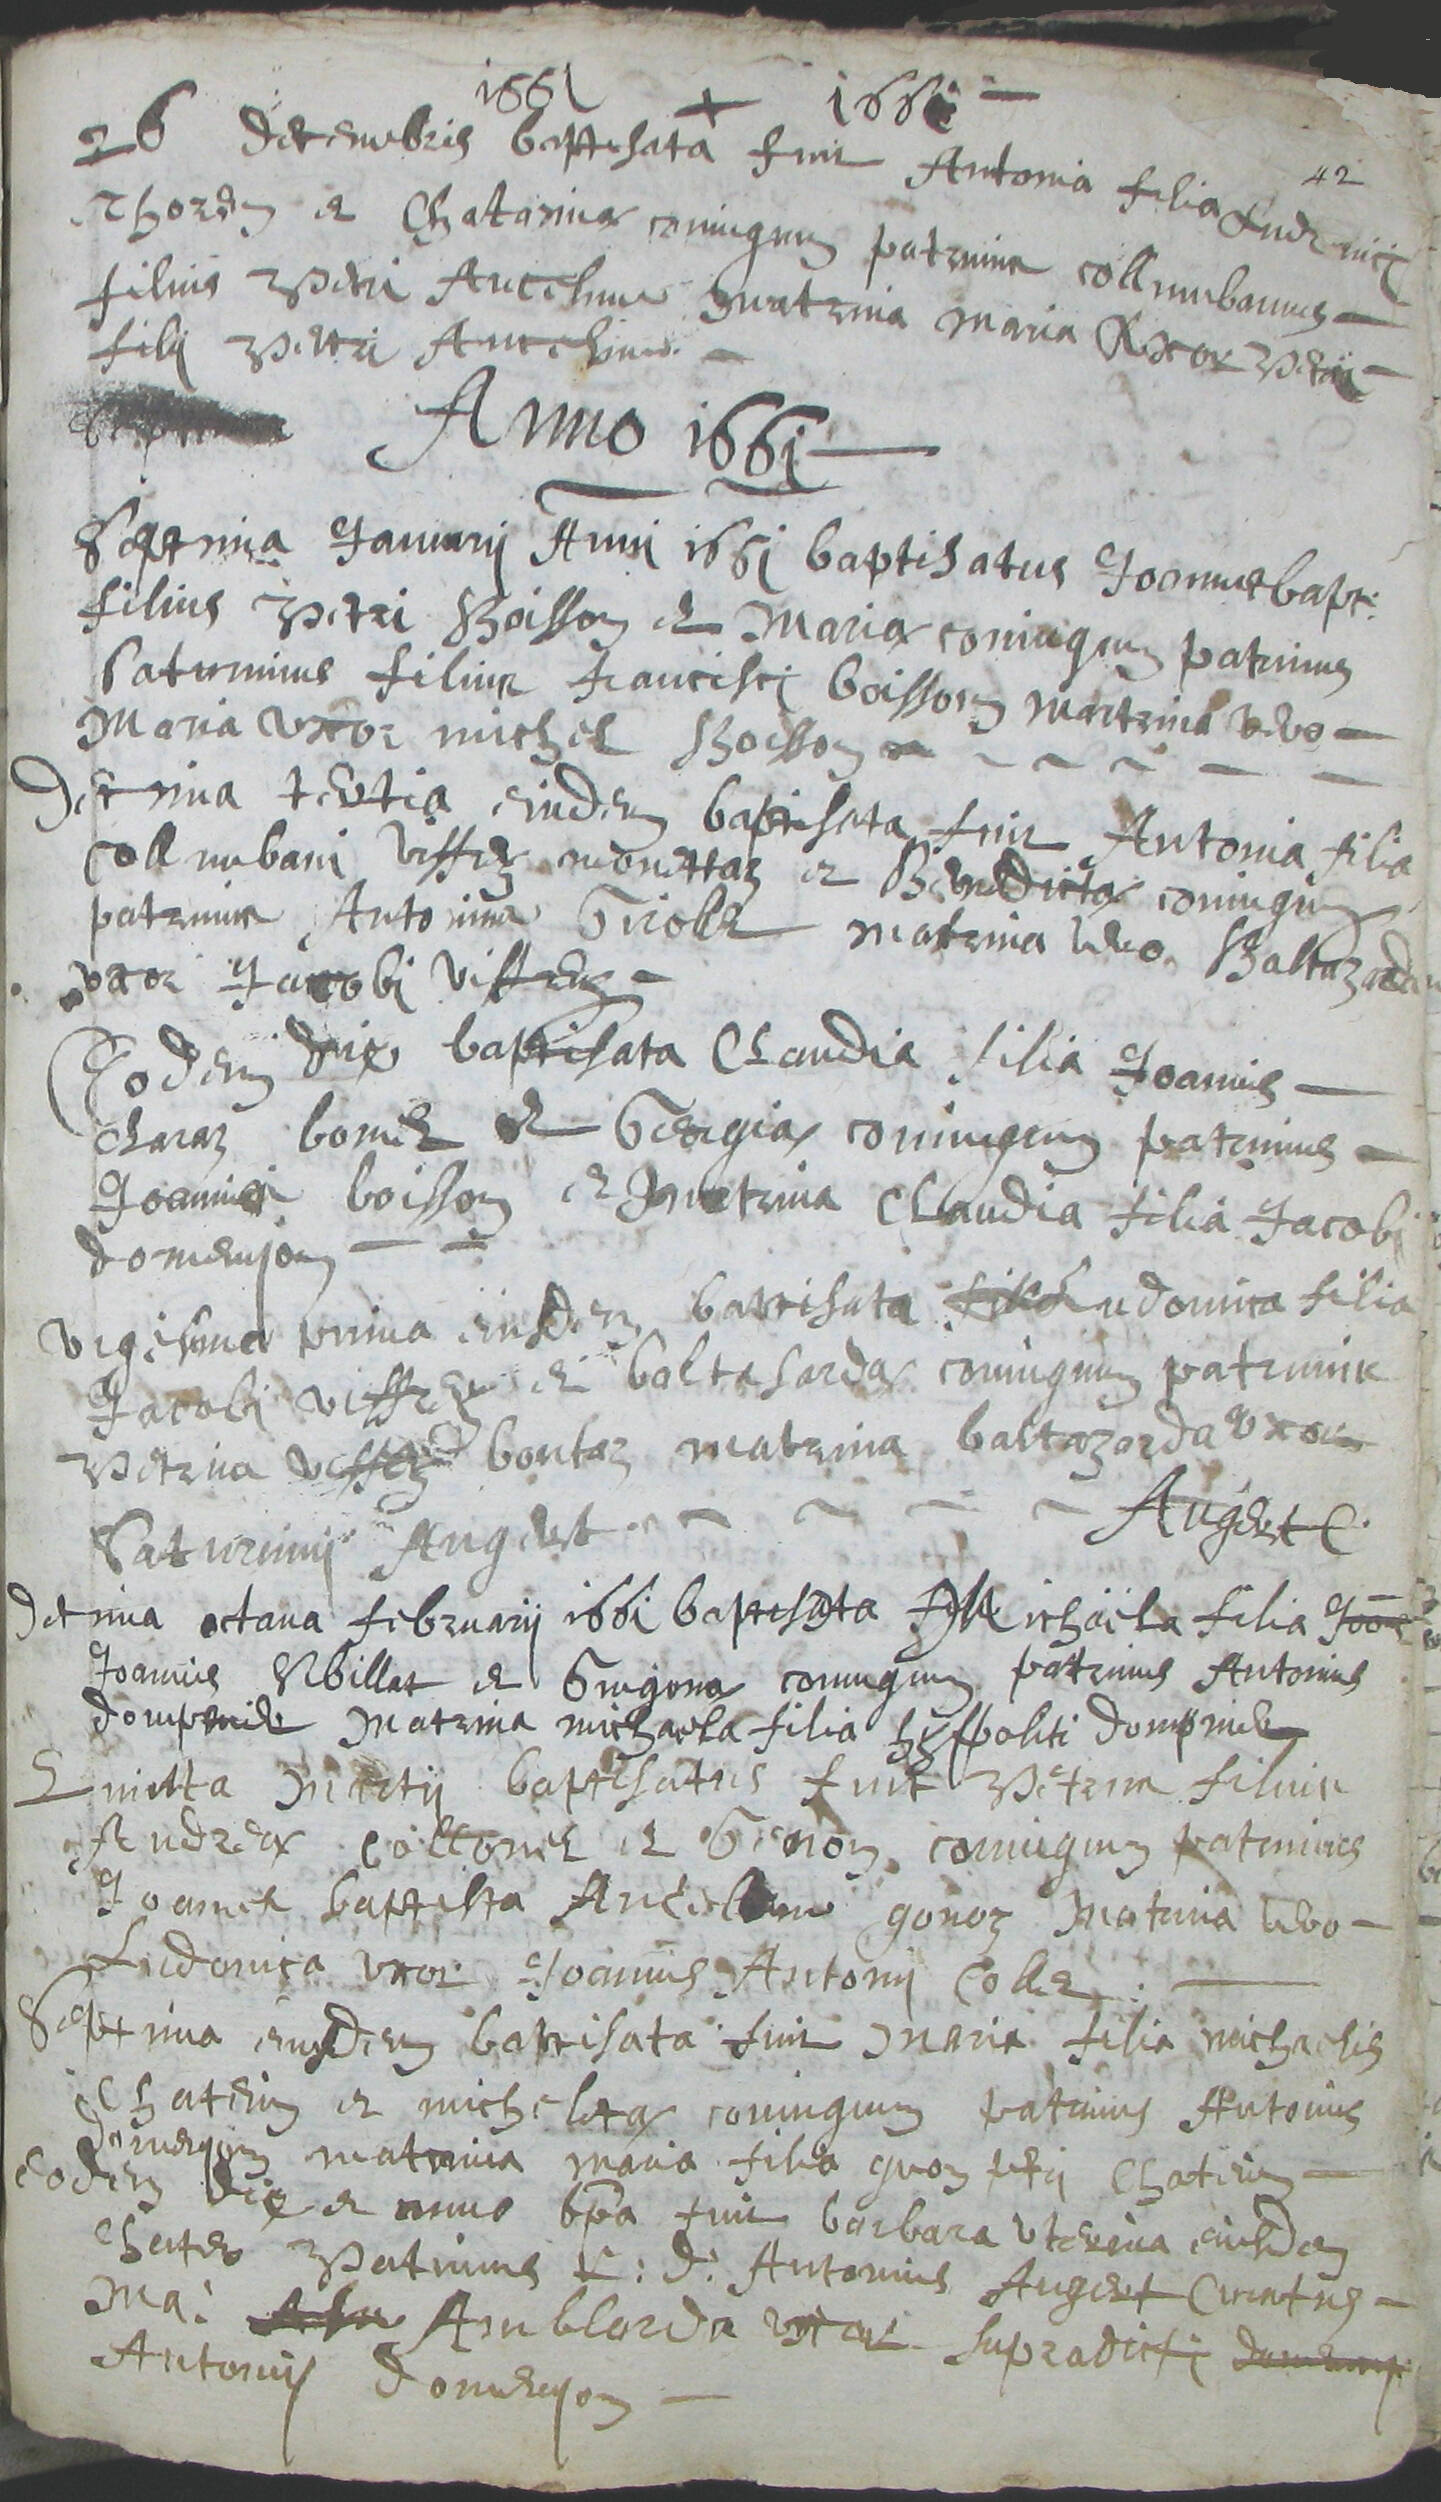 1661 + 1661
42
26 decembris baptisata fuit Antonia filia Ludovici
Thorey et Chatarinæ coniugum patrinus collumbanus
filius Petri Ancelme matrina maria Uxor Petri
filij Petri Ancelme
Anno 1661
Septima Januarij Anni 1661 baptisatus Joannes bapt:
filius Petri Boisson et Mariæ coniugum patrinus
Saturninus filius francisci boisson matrina vero
Maria uxor michel Boisson
Decima tertia eiusdem baptisata fuit Antonia filia
collumbani Viffrey monettaz et Benedictæ coniugum
patrinus Antonius Grioll matrina vero Baltazarda
uxor Jacobi viffrey
Eodem die baptisata Claudia filia Joannis
claraz bonel et Georgiæ coniugum patrinus
Joannes boisson et matrina Claudia filia Jacobi
domenjon
vigesima prima eiusdem baptisata Ludovica filia
Jacobi viffrey et baltasardæ coniugum patrinus
Petrus viffrey bontaz matrina baltazarda uxor
Saturnini Augert
Augert C.
Decima octava februarij 1661 baptisata Michaela filia
Joannis Rbillat et Guigonæ coniugum patrinus Antonius
dompnier Matrina michaela filia hyppoliti dompnier
Quinta Martij baptisatus fuit Petrus filius
Andreæ Collonel et Genon coniugum patrinus
Joannes baptista Ancelme gonoz Matrina vero
Ludovica uxor Joannis Antonij Coll
Septima eiusdem baptisata fuit Maria filia michaelis
Chaterin et micheletæ coniugum patrinus Antonius
Domenjon matrina maria filia quon petri Chaterin
Eodem die et anno bpta fuit barbara uterina eiusdem
Chater Patrinus R: d: Antonius Augert Curatus
Ma: Amblarda uxor supradicti
Antonij Domenjon